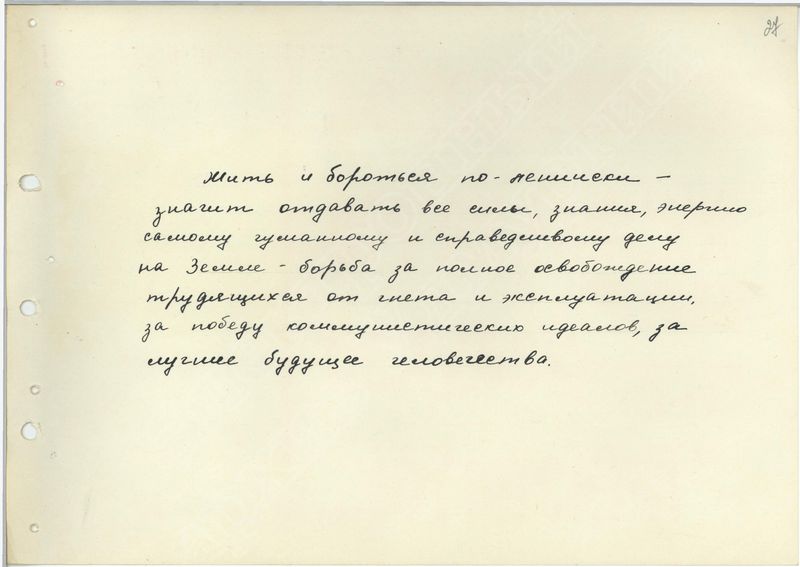 27
Жить и бороться по-ленински –
значит отдавать все силы, знания, энергию
самому гуманному и справедливому делу
на Земле – борьба за полное освобождение
трудящихся от гнета и эксплуатации,
за победу коммунистических идеалов, за
лучшее будущее человечества.